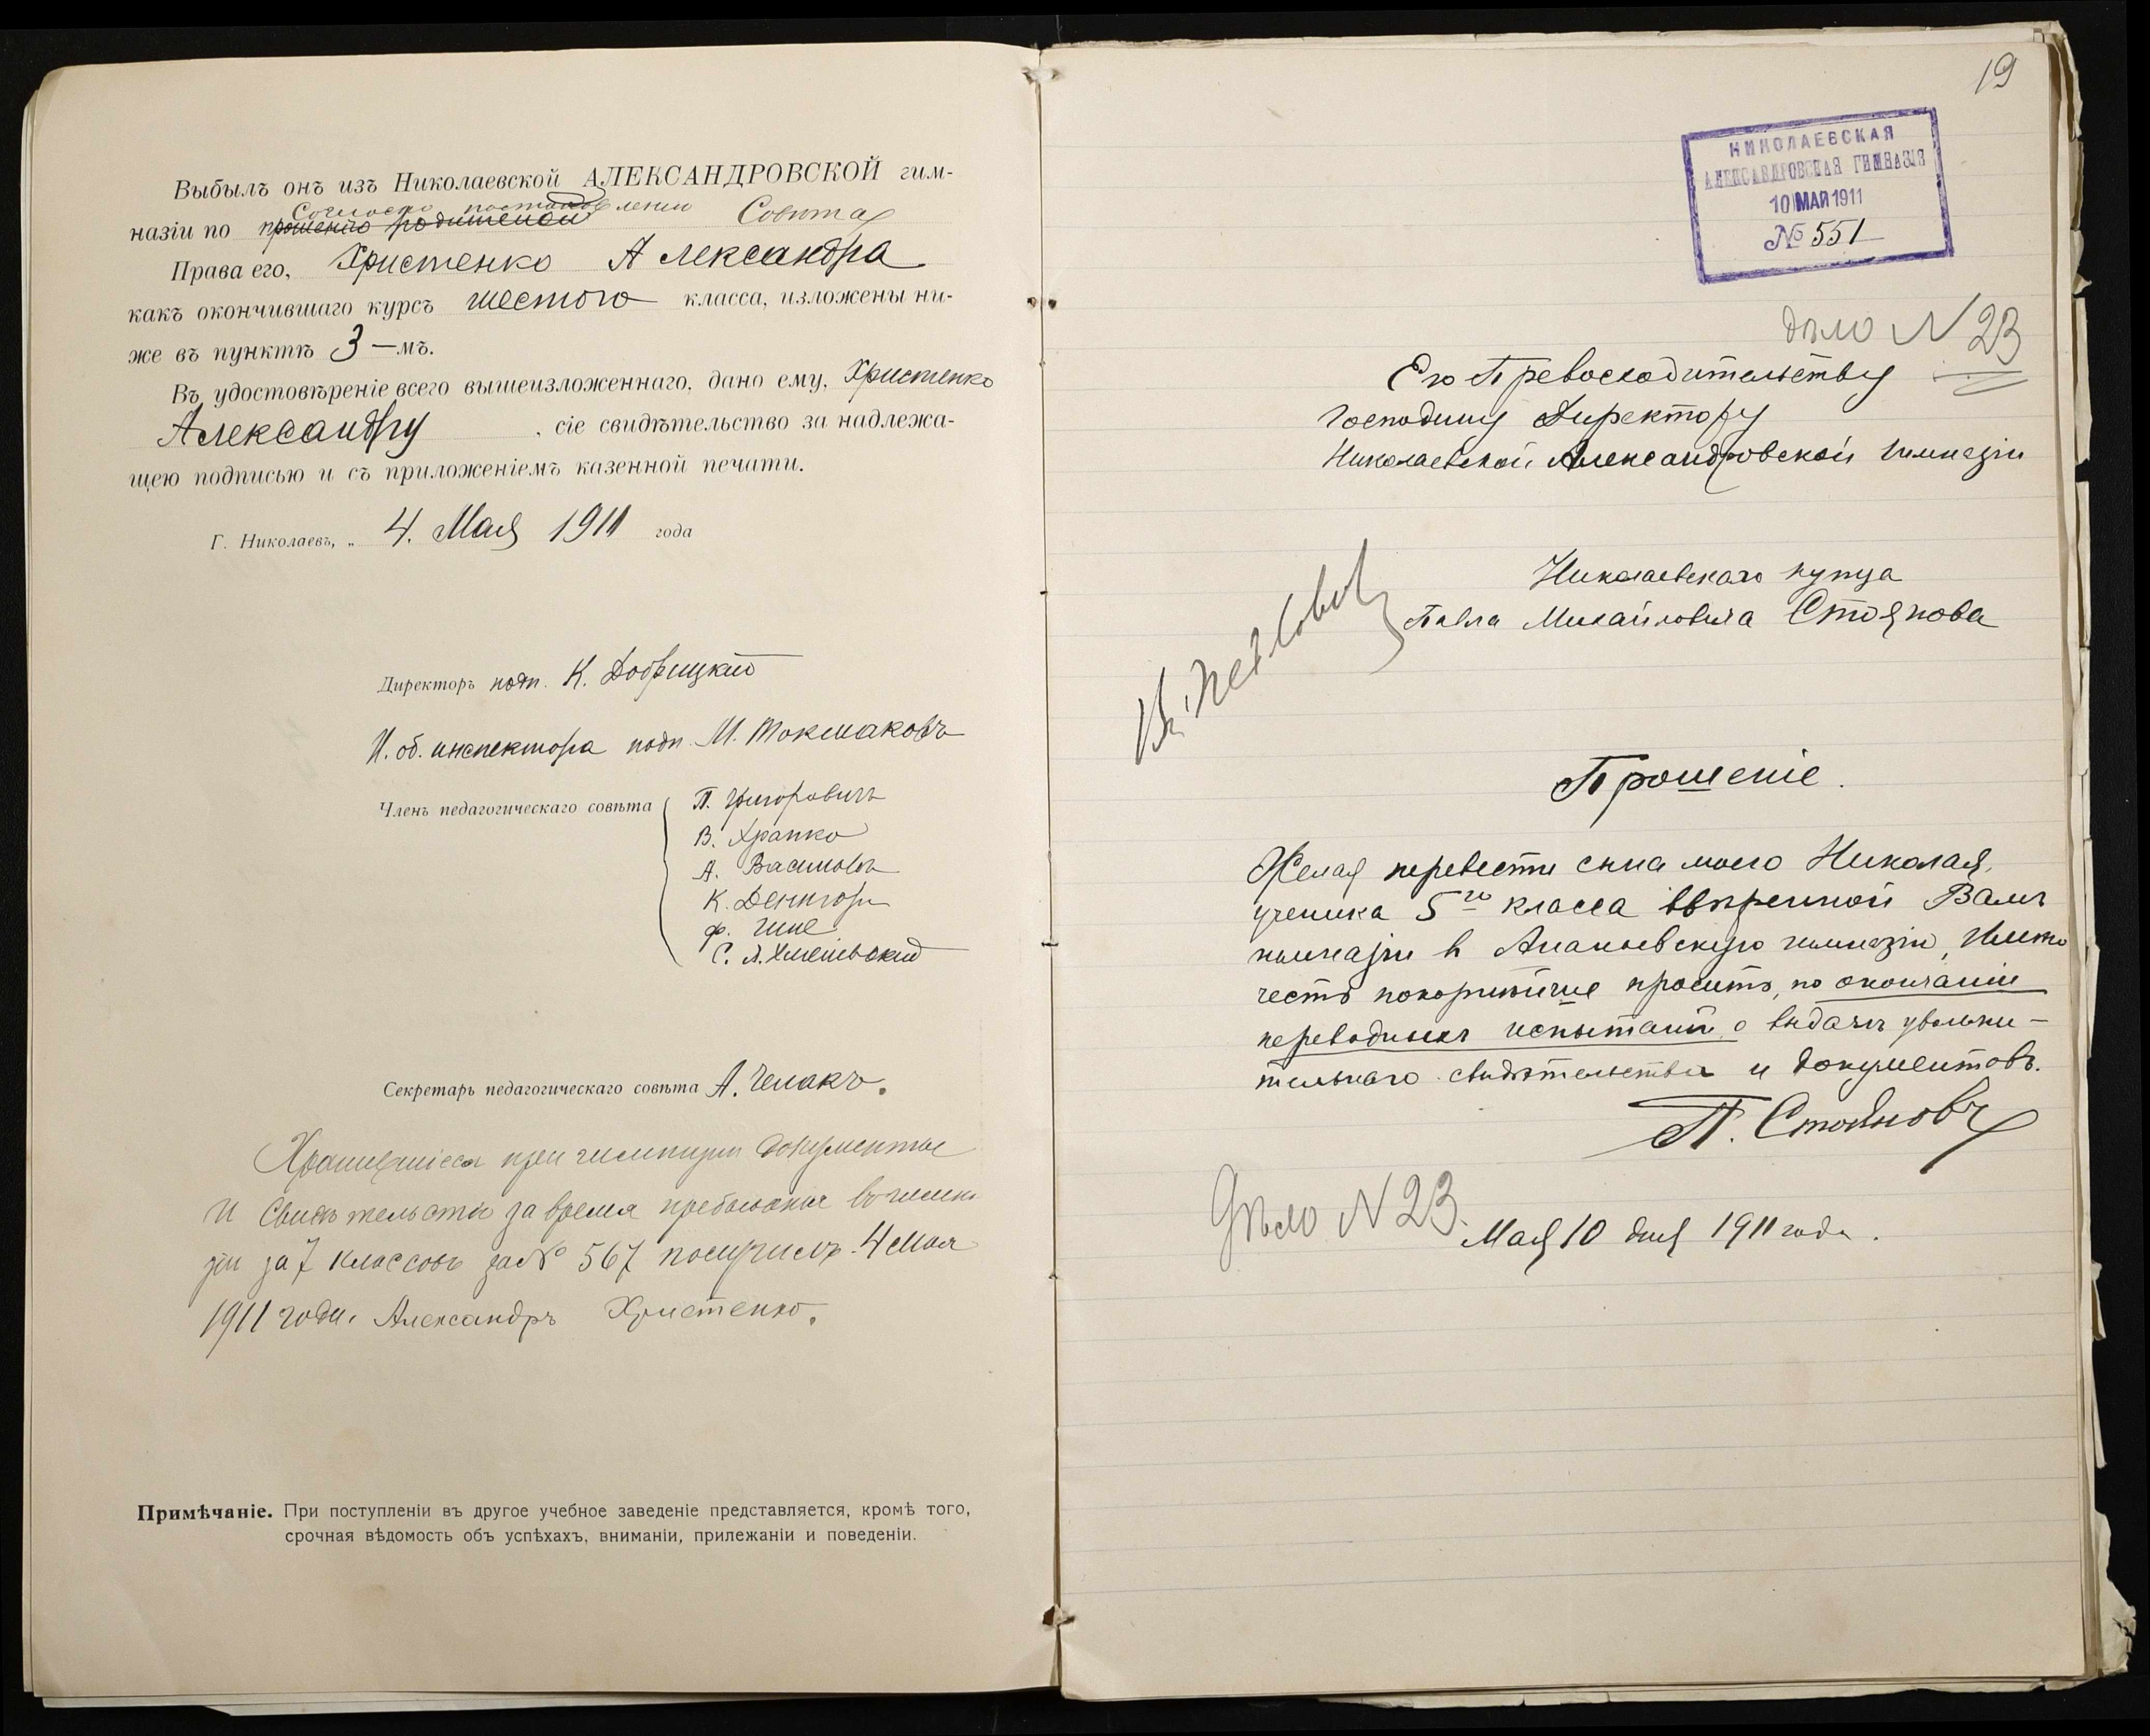 Выбылъ онъ изъ Николаевской АЛЕКСАНДРОВСКОЙ гим-
Согласно постановленію Совѣта
назіи по прошенію родителей
Права его, Христенко Александра
какъ окончившаго курсъ шестого класса, изложены ни-
же въ пунктѣ 3—мъ.
Въ удостовѣреніе всего вышеизложеннаго, дано ему, Христенко
Александру, сіе свидѣтельство за надлежа-
щею подписью и съ приложеніемъ казенной печати.
Г. Николаевъ, „ 4. Мая 1911 года
Директоръ подп. К. Добрицкій
И. об. инспектора подп. М. Токмаковъ
Членъ педагогическаго совѣта
П. Григоровичъ
В. Храпко
А.
К.
Ф.
С. А. Хмѣлевскій
Секретарь педагогическаго совѣта А. Челакъ.
Хранившіеся при гимназіи документы
и свидѣтельство за время пребыванія въ гимна
зіи за 7 классовъ за № 567 получилъ 4 мая
1911 года. Александръ Христенко.
Примѣчаніе. При поступленіи въ другое учебное заведеніе представляется, кромѣ того,
срочная вѣдомость объ успѣхахъ, вниманіи, прилежаніи и поведеніи.
19
НИКОЛАЕВСКАЯ
АЛЕКСАНДРОВСКАЯ ГИМНАЗІЯ
10 МАЯ 1911
№ 551
дѣло N 23
Его Превосходительству
Господину Директору
Николаевской Александровской Гимназіи
Николаевскаго купца
Павла Михайловича Стоянова
Прошеніе.
Желая перевести сына моего Николая,
ученика 5го класса ввѣренной Вамъ
гимназіи в Ананьевскую гимназію, имѣю
честь покорнѣйше просить, по окончаніи
переводныхъ испытаній о выдачѣ увольни-
тельнаго свидѣтельства и документовъ.
П. Стояновъ
Дѣло N 23.
Мая 10 дня 1911 года.